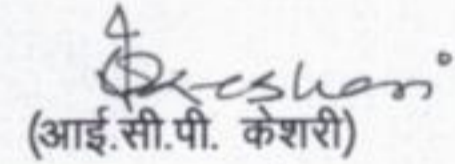 (आई.सी.पी. केशरी)